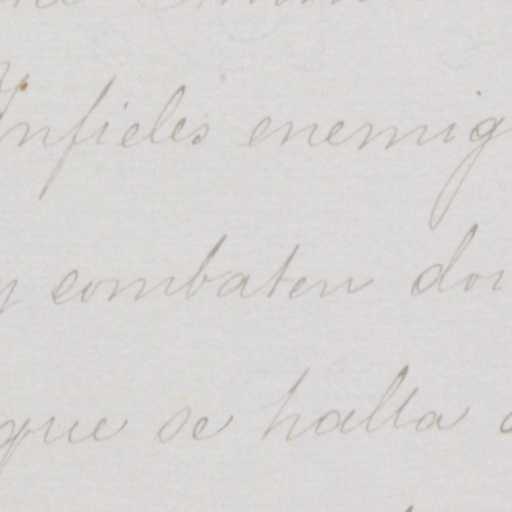 Infieles enemig
y combaten don
que se halla